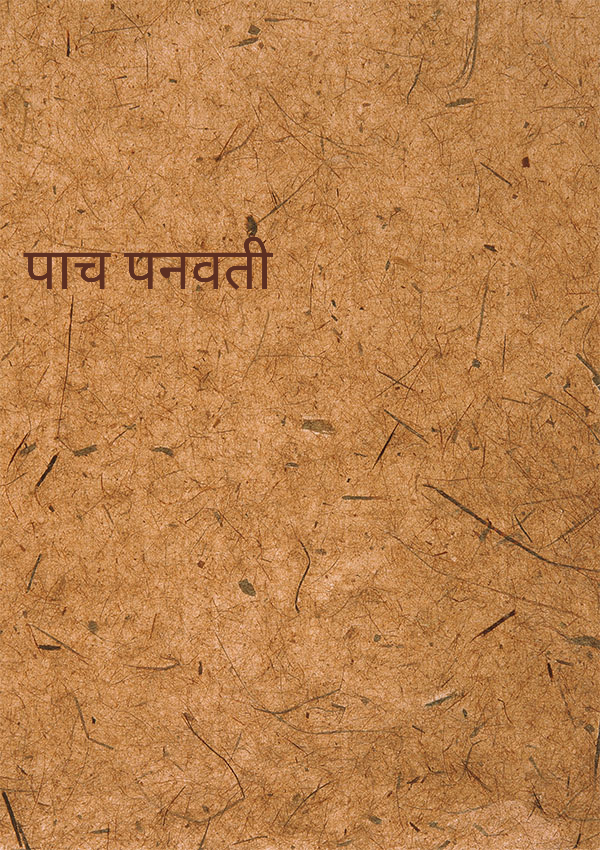 पाच पनवती